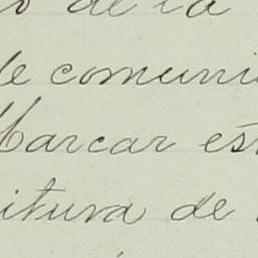 o de la
de comuni
Marcar est
itura de